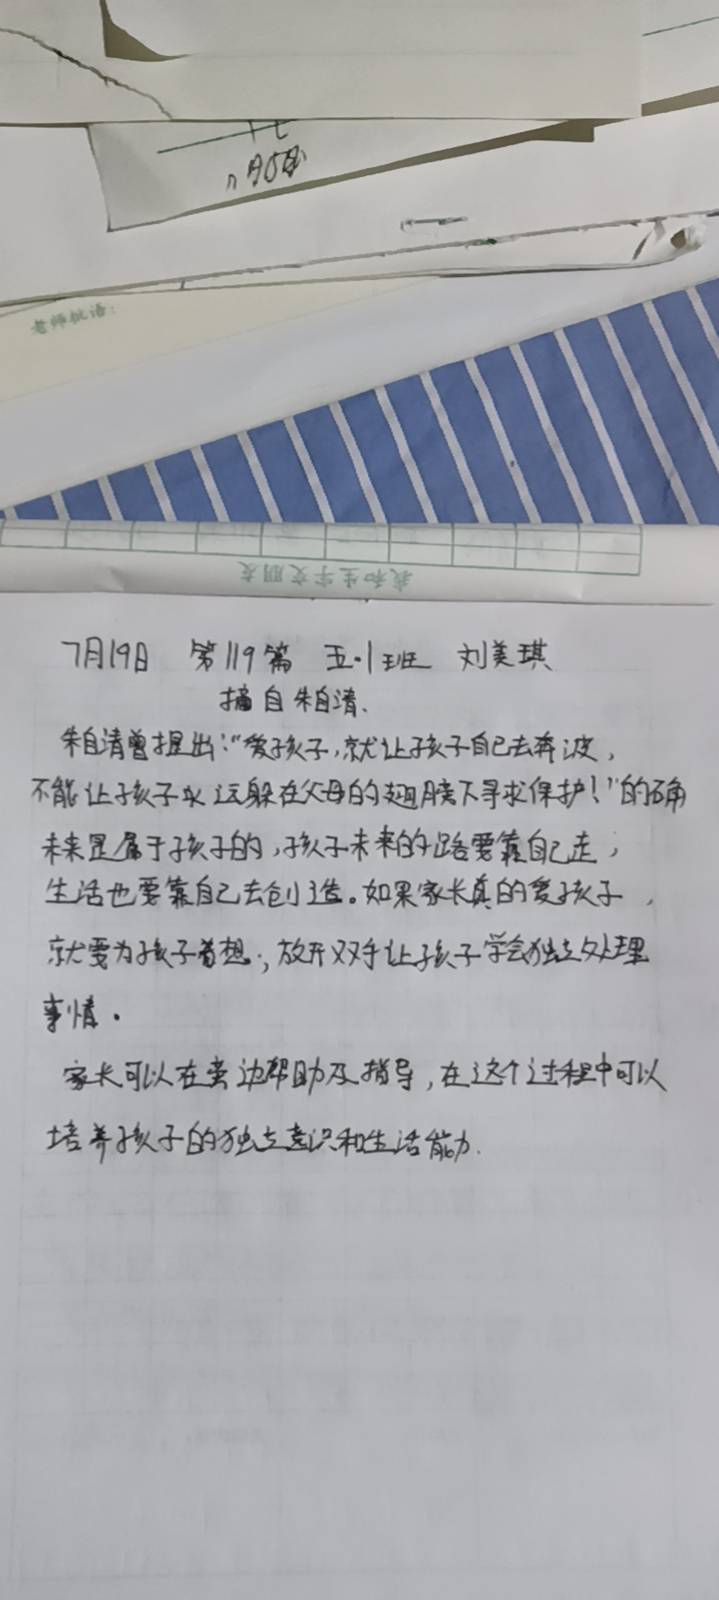 老师批语：
我和生字交朋友
7月19日 第119篇 五·1班 刘美琪
摘自朱自清、
朱自清曾提出：“爱孩子，就让孩子自己去奔波，
不能让孩子永远躲在父母的翅膀下寻求保护！”的确
未来是属于孩子的，孩子未来的路要靠自己走，
生活也要靠自己去创造。如果家长真的爱孩子，
就要为孩子着想，放开双手让孩子学会独立处理
事情。
家长可以在旁边帮助及指导，在这个过程中可以
培养孩子的独立意识和生活能力.